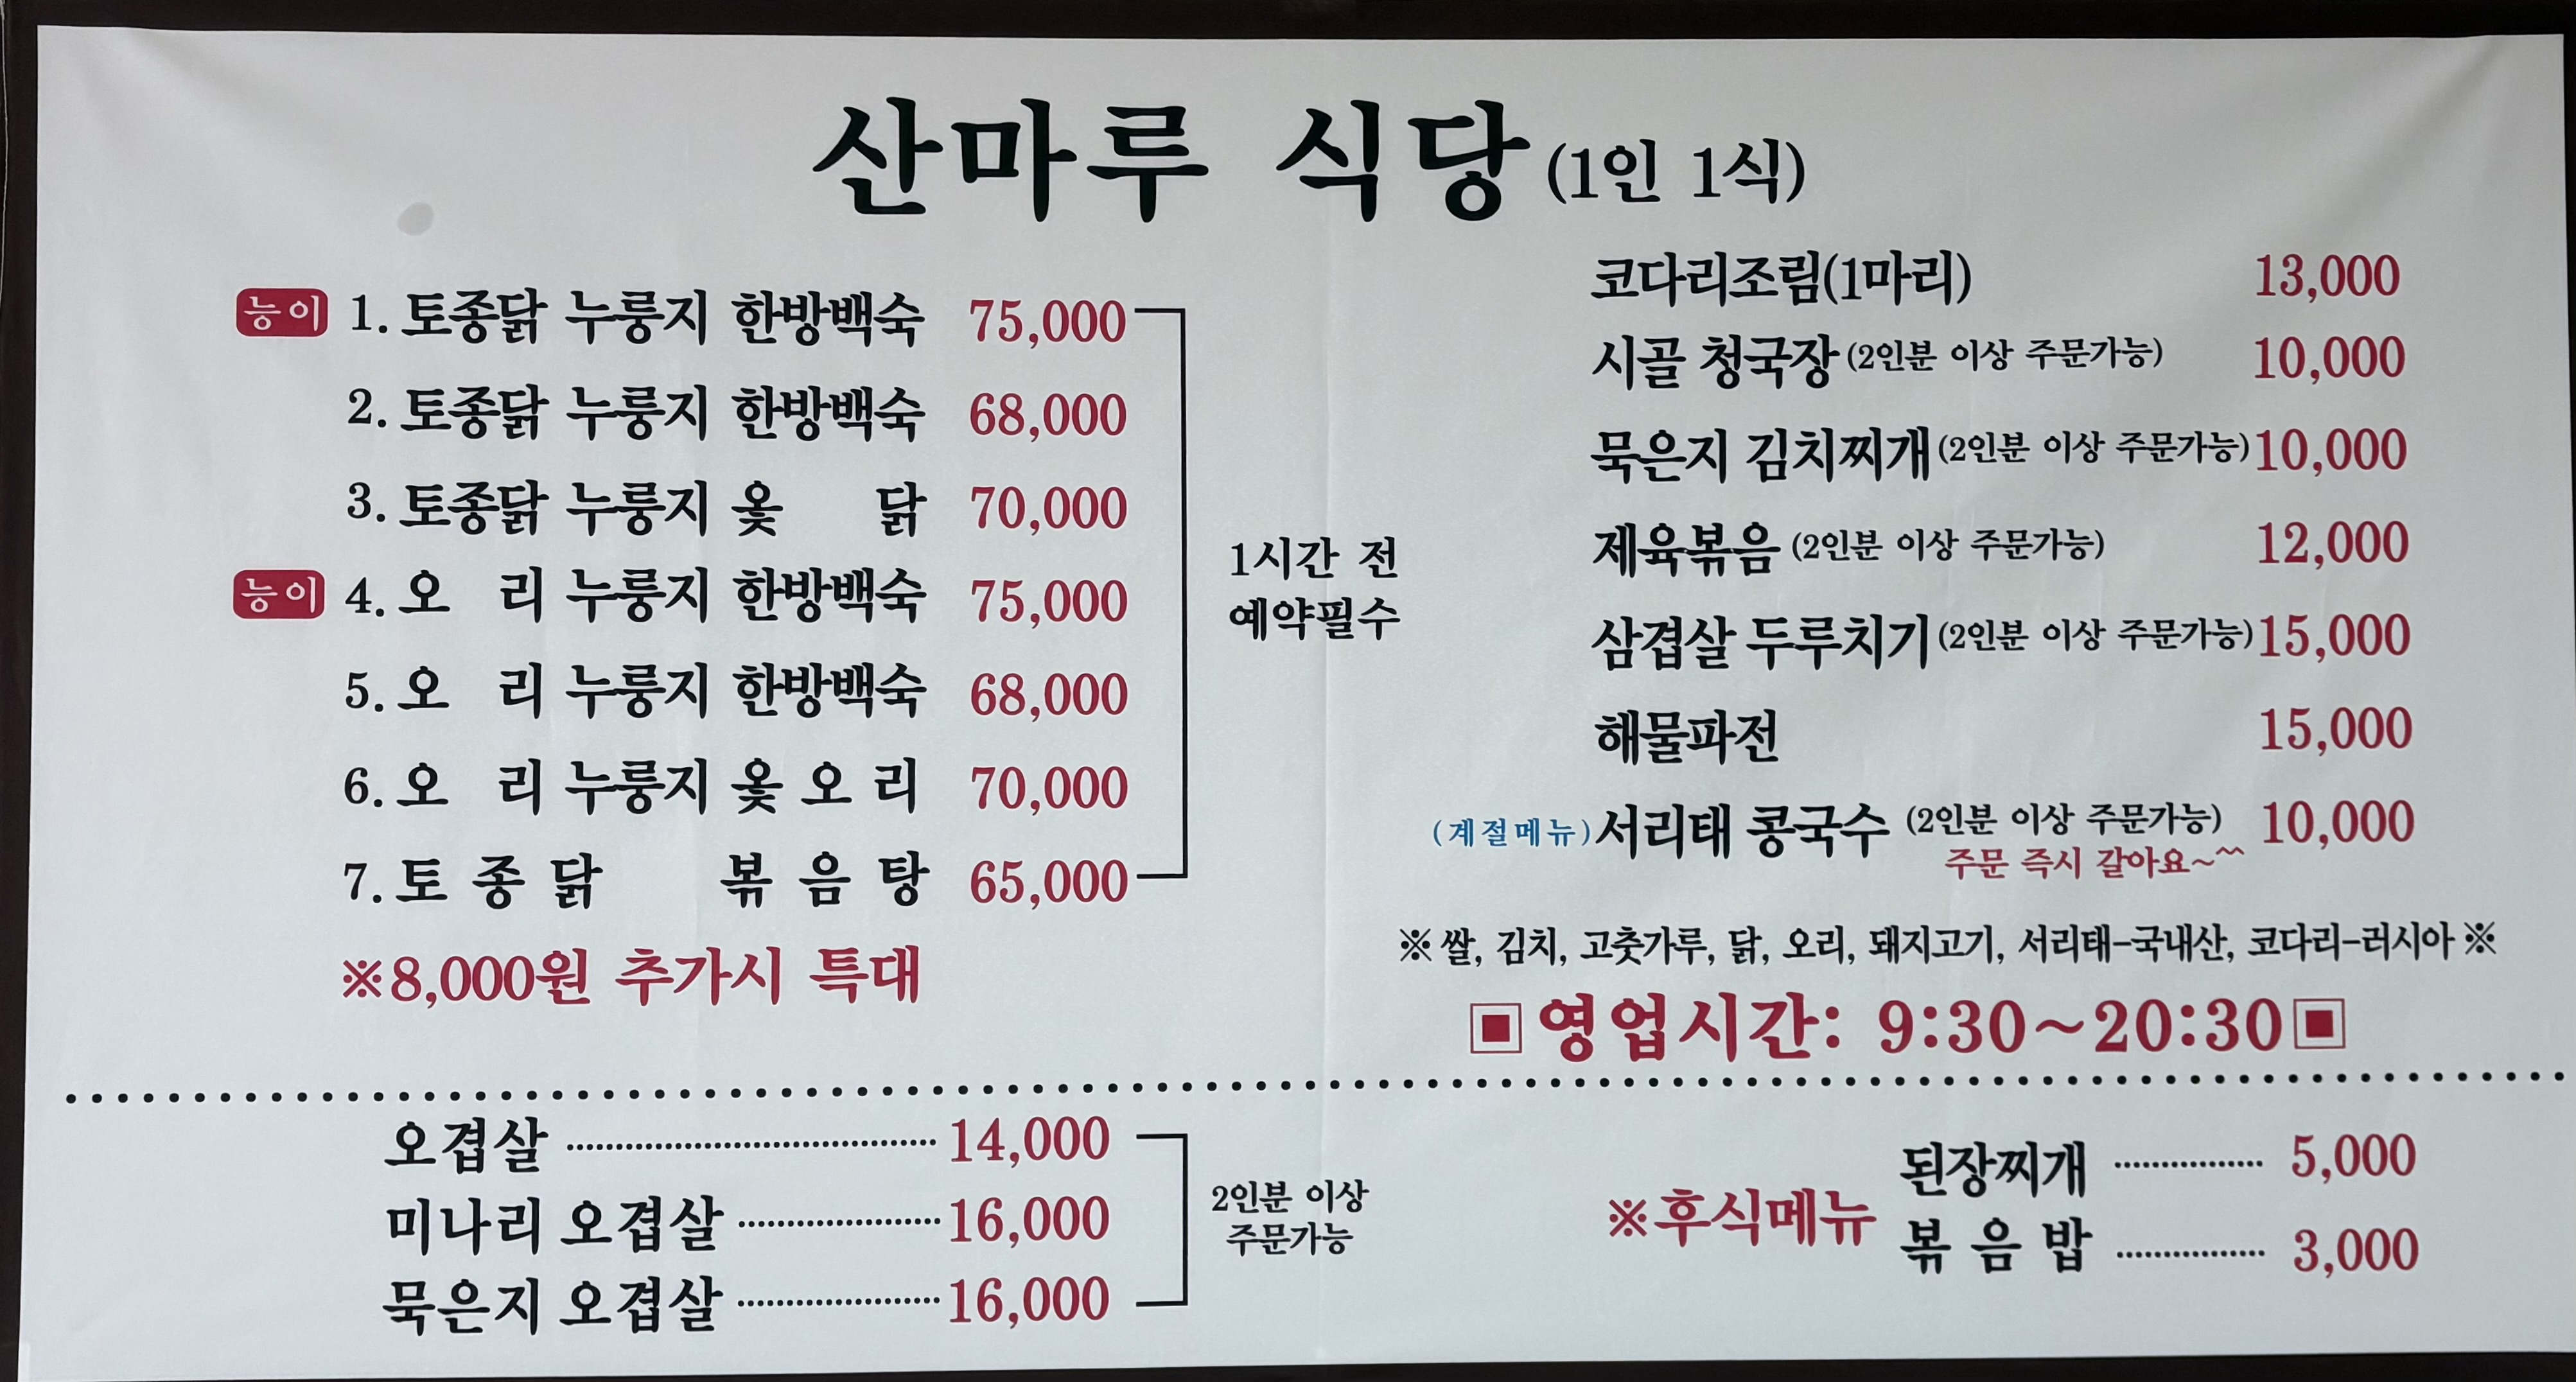 산마루 식당 (1인 1식)
능이 1. 토종닭 누룽지 한방백숙 75,000
2. 토종닭 누룽지 한방백숙 68,000
3. 토종닭 누룽지 옻 닭 70,000
능이 4. 오 리 누룽지 한방백숙 75,000
5. 오 리 누룽지 한방백숙 68,000
6. 오 리 누룽지 옻 오 리 70,000
7. 토 종 닭 볶 음 탕 65,000
1시간 전
예약필수
※8,000원 추가시 특대
코다리조림(1마리) 13,000
시골 청국장 (2인분 이상 주문가능) 10,000
묵은지 김치찌개 (2인분 이상 주문가능) 10,000
제육볶음 (2인분 이상 주문가능) 12,000
삼겹살 두루치기 (2인분 이상 주문가능) 15,000
해물파전 15,000
(계절메뉴) 서리태 콩국수 (2인분 이상 주문가능) 10,000
주문 즉시 갈아요~^^
※ 쌀, 김치, 고춧가루, 닭, 오리, 돼지고기, 서리태-국내산, 코다리-러시아 ※
▣ 영업시간: 9:30~20:30 ▣
오겹살 ········ 14,000
미나리 오겹살 ········ 16,000
묵은지 오겹살 ········ 16,000
2인분 이상
주문가능
※후식메뉴
된장찌개 ········ 5,000
볶 음 밥 ········ 3,000